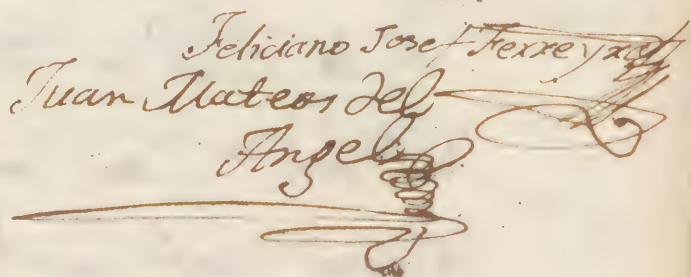 Feliciano Josef Ferreyra
Juan Mateos del
Angel